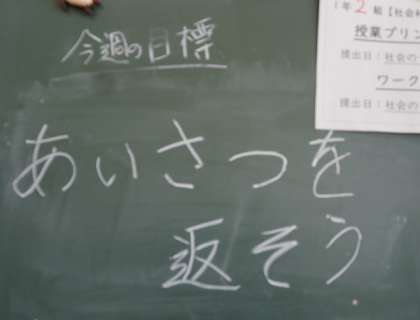 今週の目標
あいさつを
返そう
1年2組【社会
授業プリン
提出日：社会の
ワーク
提出日：社会の